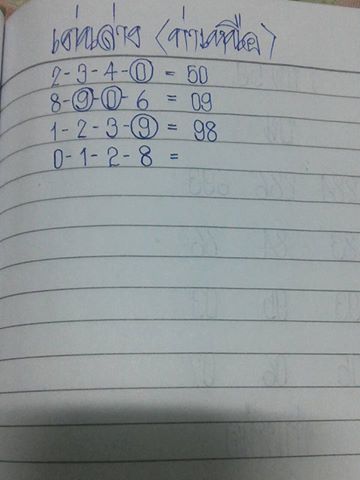 เด่นล่าง (ท่าเหนือ)
2-3-4-0 = 50
8-9-0-6 = 09
1-2-3-9 = 98
0-1-2-8 =